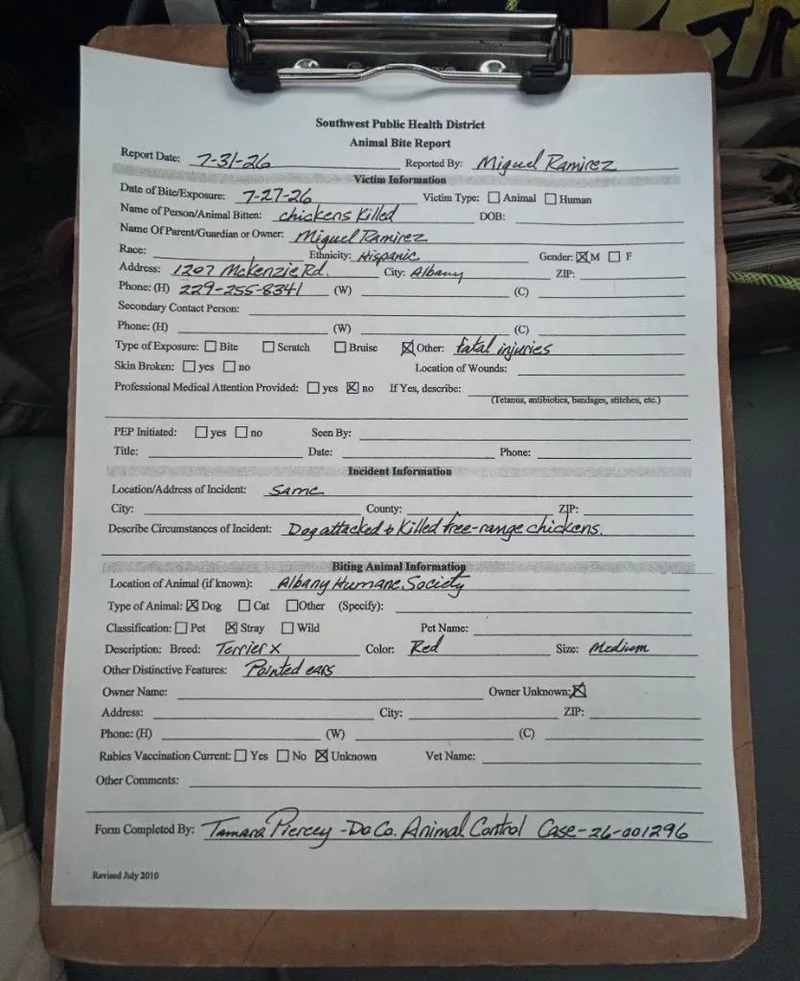 Southwest Public Health District
Animal Bite Report
Report Date: 7-31-26 Reported By: Miguel Ramirez
Victim Information
Date of Bite/Exposure: 7-27-26 Victim Type: ☐ Animal ☐ Human
Name of Person/Animal Bitten: chickens killed DOB:
Name Of Parent/Guardian or Owner: Miguel Ramirez
Race: Ethnicity: Hispanic Gender: ☒ M ☐ F
Address: 1207 McKenzie Rd. City: Albany ZIP:
Phone: (H) 229-255-8341 (W) (C)
Secondary Contact Person:
Phone: (H) (W) (C)
Type of Exposure: ☐ Bite ☐ Scratch ☐ Bruise ☒ Other: fatal injuries
Skin Broken: ☐ yes ☐ no Location of Wounds:
Professional Medical Attention Provided: ☐ yes ☒ no If Yes, describe:
(Tetanus, antibiotics, bandages, stitches, etc.)
PEP Initiated: ☐ yes ☐ no Seen By:
Title: Date: Phone:
Incident Information
Location/Address of Incident: same
City: County: ZIP:
Describe Circumstances of Incident: Dog attacked & killed free-range chickens.
Biting Animal Information
Location of Animal (if known): Albany Humane Society
Type of Animal: ☒ Dog ☐ Cat ☐ Other (Specify):
Classification: ☐ Pet ☒ Stray ☐ Wild Pet Name:
Description: Breed: Terrier X Color: Red Size: Medium
Other Distinctive Features: Pointed ears
Owner Name: Owner Unknown: ☒
Address: City: ZIP:
Phone: (H) (W) (C)
Rabies Vaccination Current: ☐ Yes ☐ No ☒ Unknown Vet Name:
Other Comments:
Form Completed By: Tamara Piercey - Do Co. Animal Control Case-26-001296
Revised July 2010